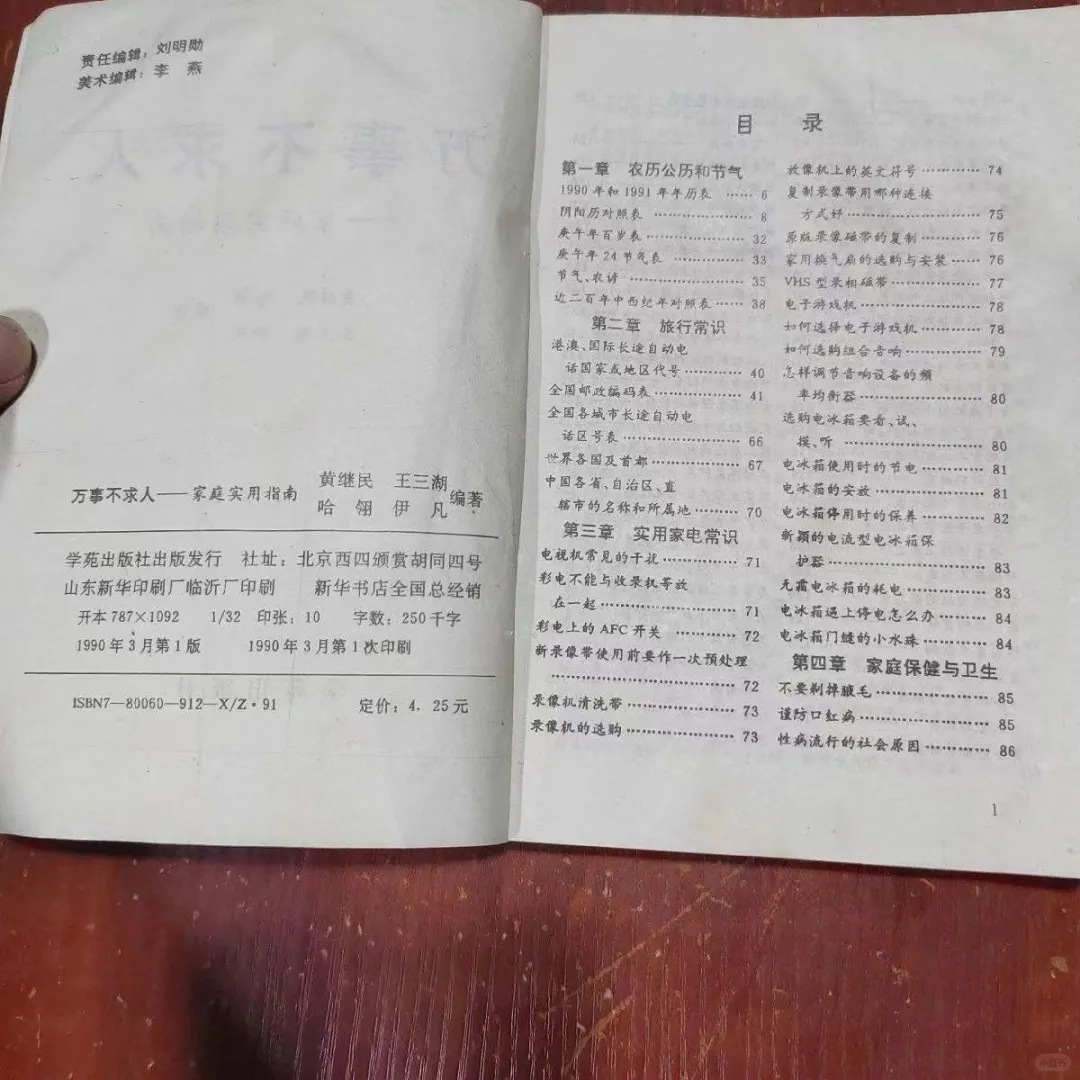 责任编辑：刘明勋
美术编辑：李 燕
万事不求人——家庭实用指南 黄继民 王三湖 编著
哈 翎 伊 凡
学苑出版社出版发行 社址：北京西四颁赏胡同四号
山东新华印刷厂临沂厂印刷 新华书店全国总经销
开本787×1092 1/32 印张：10 字数：250千字
1990年3月第1版 1990年3月第1次印刷
ISBN7—80060—912—X/Z·91 定价：4．25元
目 录
第一章 农历公历和节气
1990年和1991年年历表 …… 6
阴阳历对照表 …………… 8
庚午年百岁表 …………… 32
庚午年24节气表 ………… 33
节气、农谚 …………… 35
近二百年中西纪年对照表 …… 38
第二章 旅行常识
港澳、国际长途自动电
话国家或地区代号 ………… 40
全国邮政编码表 …………… 41
全国各城市长途自动电
话区号表 …………… 66
世界各国及首都 …………… 67
中国各省、自治区、直
辖市的名称和所属地 …… 70
第三章 实用家电常识
电视机常见的干扰 ………… 71
彩电不能与收录机等放
在一起 …………… 71
彩电上的AFC开关 ………… 72
新录像带使用前要作一次预处理
…………… 72
录像机清洗带 …………… 73
录像机的选购 …………… 73
放像机上的英文符号 ………… 74
复制录像带用哪种连接
方式好 …………… 75
原版录像磁带的复制 ………… 76
家用换气扇的选购与安装 …… 76
VHS型录相磁带 …………… 77
电子游戏机 …………… 78
如何选择电子游戏机 ………… 78
如何选购组合音响 …………… 79
怎样调节音响设备的频
率均衡器 …………… 80
选购电冰箱要看、试、
摸、听 …………… 80
电冰箱使用时的节电 ………… 81
电冰箱的安放 …………… 81
电冰箱停用时的保养 ………… 82
新颖的电流型电冰箱保
护器 …………… 83
无霜电冰箱的耗电 …………… 83
电冰箱遇上停电怎么办 …… 84
电冰箱门缝的小水珠 ………… 84
第四章 家庭保健与卫生
不要剃掉腋毛 …………… 85
谨防口红病 …………… 85
性病流行的社会原因 ………… 86
1